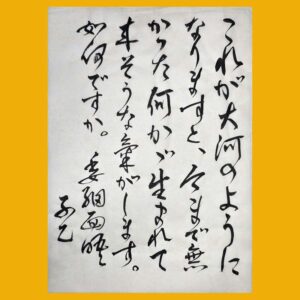 これが大河のように
なりますと、今まで無
かった何かゞ生まれて
来そうな気がします。
如何ですか。委細面晤